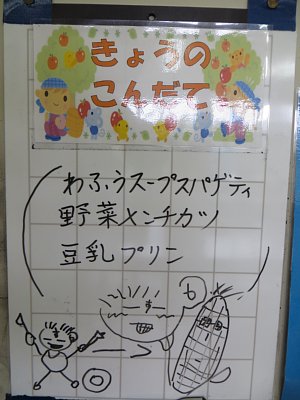 きょうの
こんだて
わふうスープスパゲティ
野菜メンチカツ
豆乳プリン